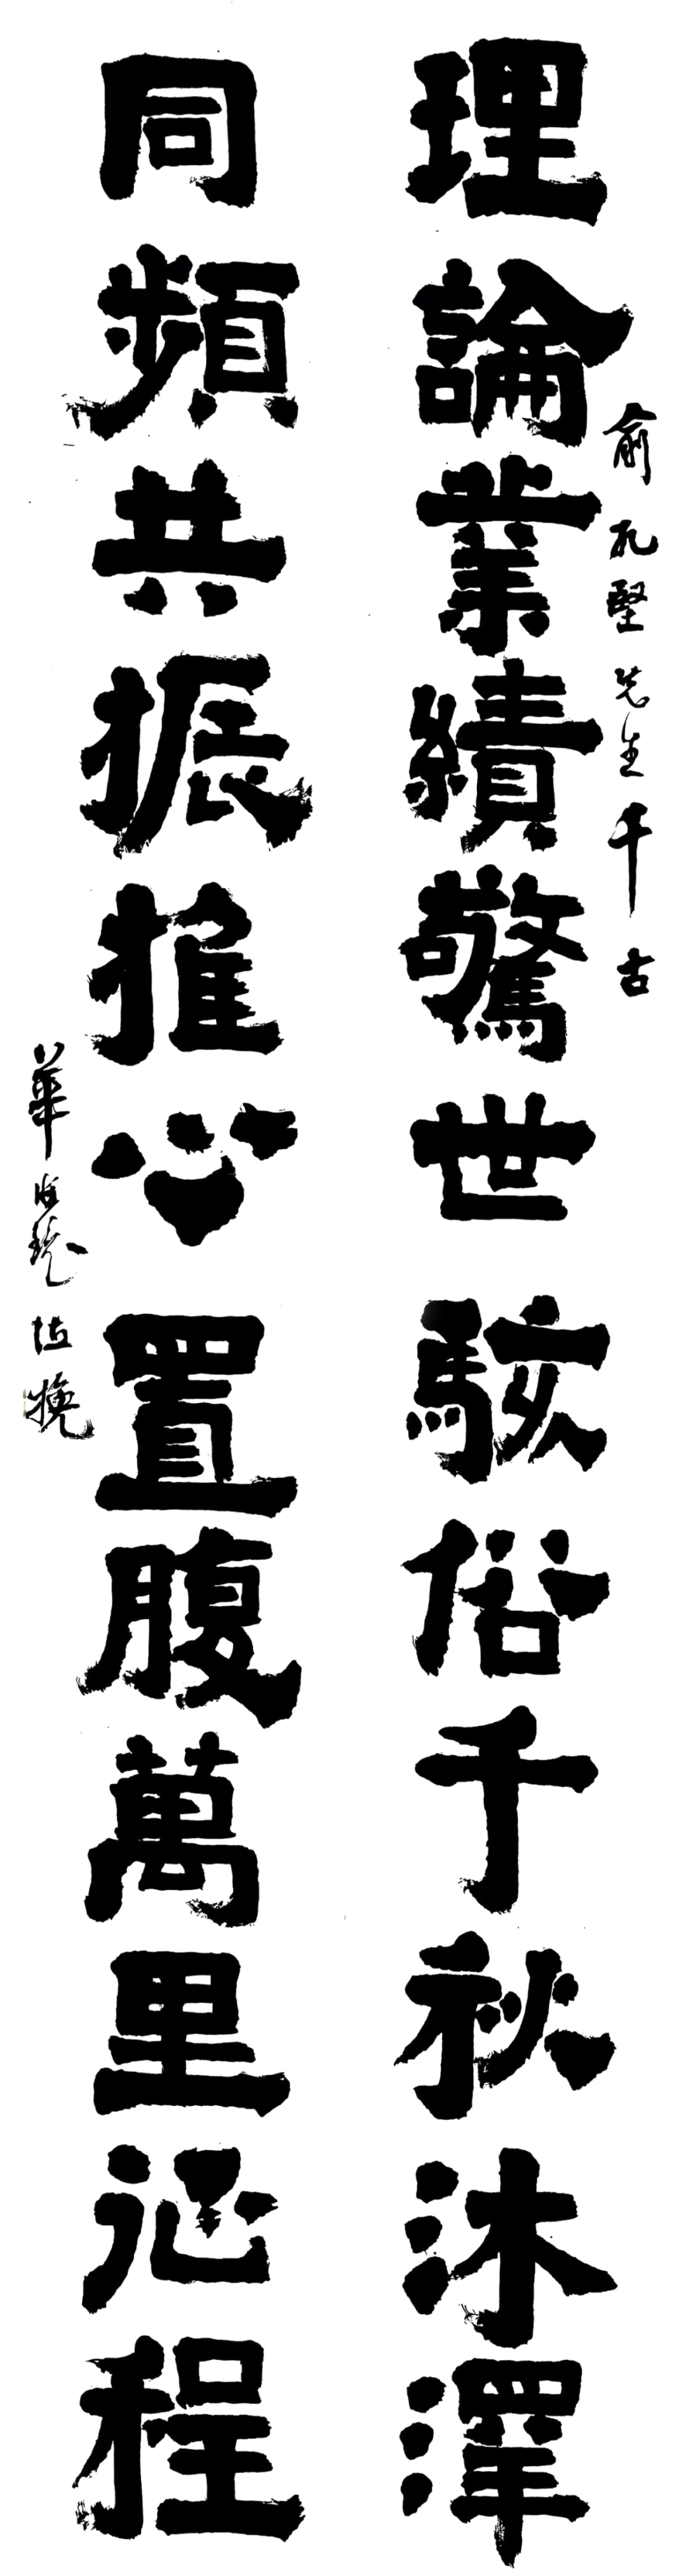 俞孔堅先生千古
理論業績驚世駭俗千秋沐澤
同頻共振推心置腹萬里征程
華海鏡 挽